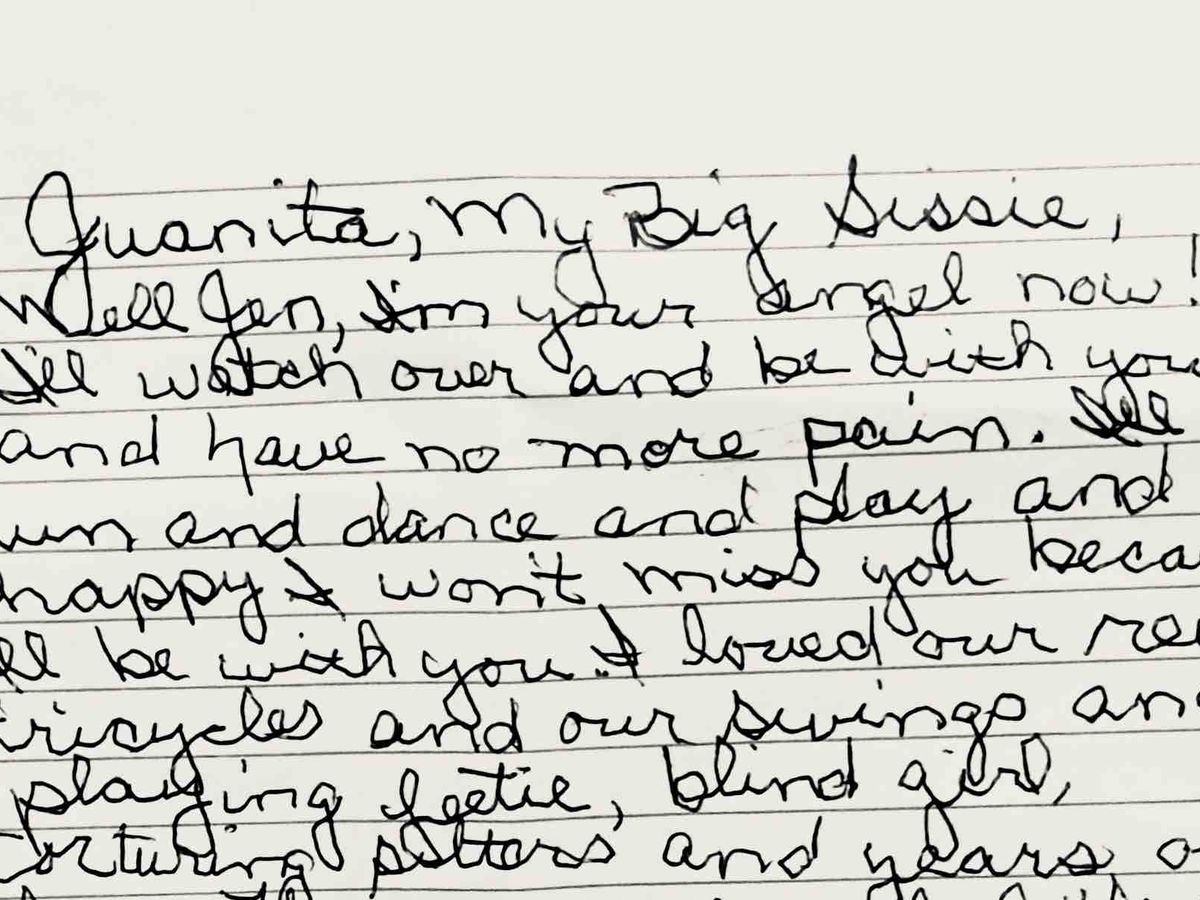 Juanita, My Big Sissie,
Well Jen, I'm your angel now!
I'll watch over and be with you
and have no more pain. I'll
run and dance and play and
happy I won't miss you beca
ll be with you. I loved our re
tricycles and our swings an
playing feetie, blind girl,
torturing and years, o